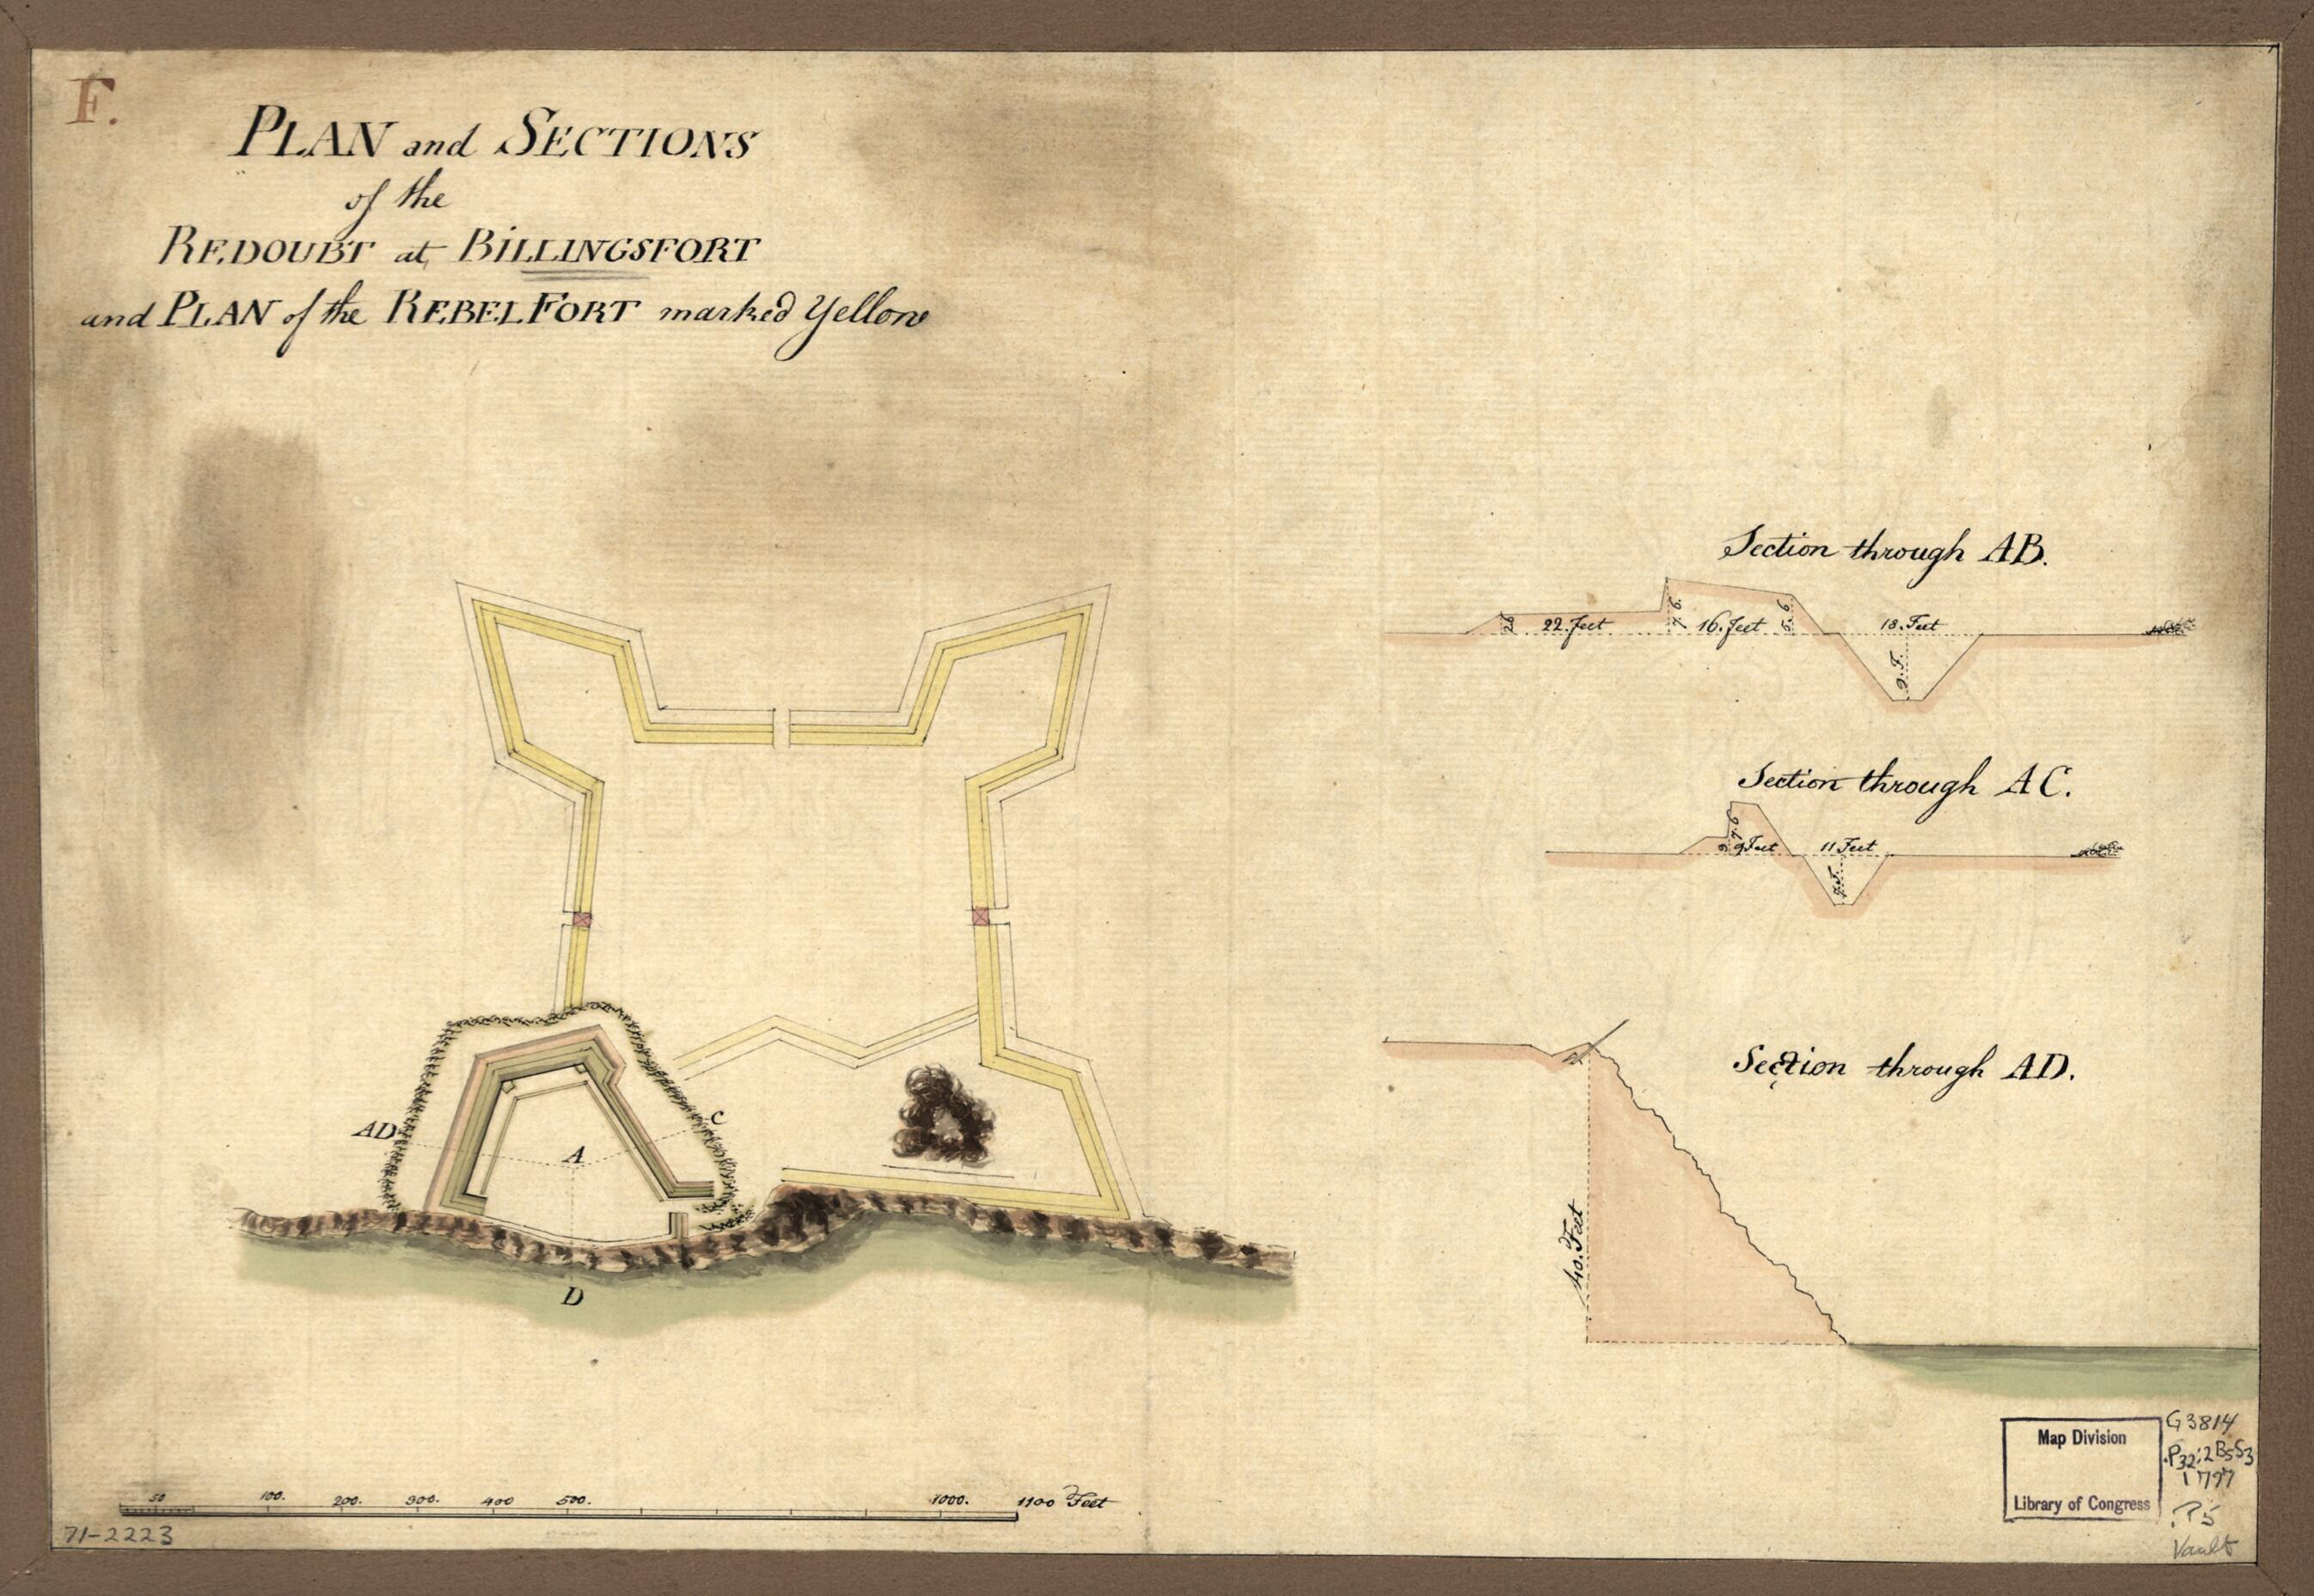 F.
PLAN and SECTIONS
of the
REDOUBT at BILLINGSFORT
and PLAN of the REBEL FORT marked Yellow
Section through AB.
2.6 22. feet 7.6. 16. feet 5.6. 18. Feet
9. F.
Section through AC.
7.6
9 Feet 11 Feet
7. F.
Section through AD.
40. Feet
AD
C
A
D
50 100. 200. 300. 400 500. 1000. 1100 Feet
71-2223
Map Division
Library of Congress
G3814
.P32:2B5S3
1777
.P5
Vault